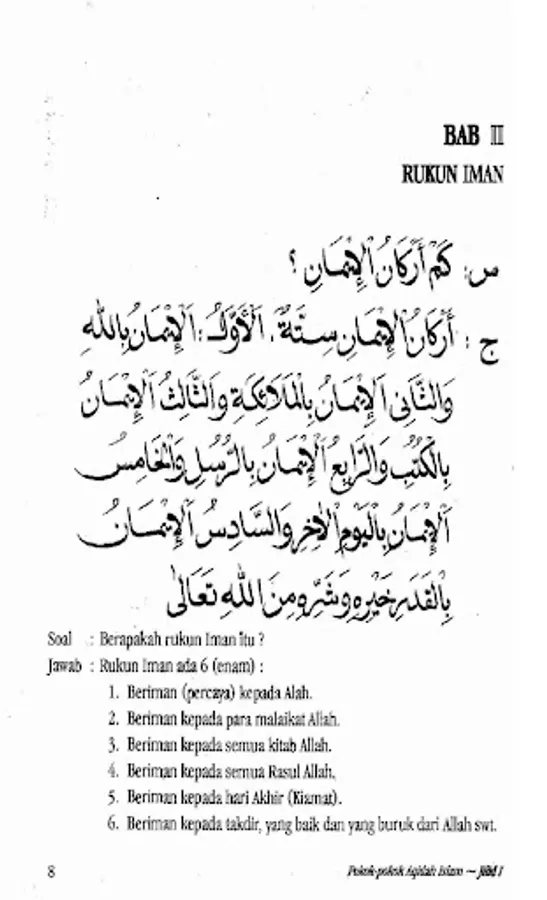 BAB II
RUKUN IMAN
س: كَمْ أَرْكَانُ الْإِيْمَانِ ؟
ج : أَرْكَانُ الْإِيْمَانِ سِتَّةٌ، اَلْأَوَّلُ : اَلْإِيْمَانُ بِاللهِ
وَالثَّانِى اَلْإِيْمَانُ بِالْمَلَائِكَةِ وَالثَّالِثُ اَلْإِيْمَانُ
بِالْكُتُبِ وَالرَّابِعُ اَلْإِيْمَانُ بِالرُّسُلِ وَالْخَامِسُ
اَلْإِيْمَانُ بِالْيَوْمِ الْآخِرِ وَالسَّادِسُ اَلْإِيْمَانُ
بِالْقَدَرِ خَيْرِهِ وَشَرِّهِ مِنَ اللهِ تَعَالَى
Soal : Berapakah rukun Iman itu ?
Jawab : Rukun Iman ada 6 (enam) :
1. Beriman (percaya) kepada Alah.
2. Beriman kepada para malaikat Allah.
3. Beriman kepada semua kitab Allah.
4. Beriman kepada semua Rasul Allah.
5. Beriman kepada hari Akhir (Kiamat).
6. Beriman kepada takdir, yang baik dan yang buruk dari Allah swt.
8 Pokok-pokok Aqidah Islam — Jilid I